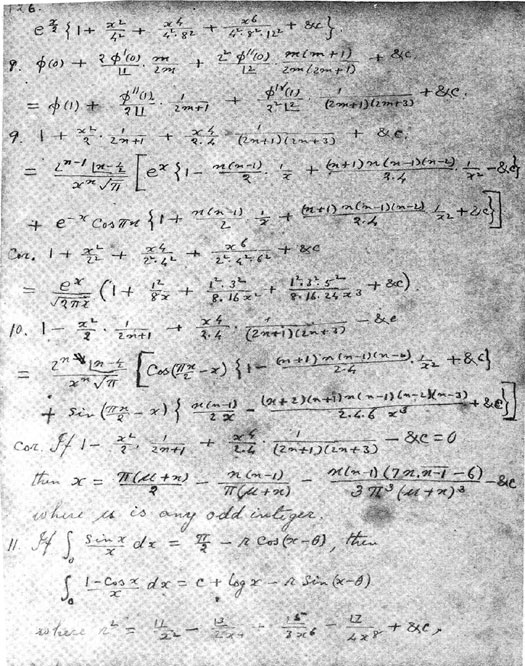 126.
e^{x/2} {1 + x²/4² + x⁴/(4².8²) + x⁶/(4².8².12²) + &c}.
8. φ(0) + 2φ'(0)/⌊1 . m/2m + 2²φ''(0)/⌊2 . m(m+1)/(2m(2m+1)) + &c
= φ(1) + φ''(1)/(2⌊1) . 1/(2m+1) + φ^{IV}(1)/(2²⌊2) . 1/((2m+1)(2m+3)) + &c.
9. 1 + x²/2 . 1/(2n+1) + x⁴/(2.4) . 1/((2n+1)(2n+3)) + &c
= 2^{n-1}⌊n-½/(xⁿ√π) [e^x {1 - n(n-1)/2 . 1/x + (n+1)n(n-1)(n-2)/(2.4) . 1/x² - &c}
+ e^{-x} Cos πn {1 + n(n-1)/2 . 1/x + (n+1)n(n-1)(n-2)/(2.4) . 1/x² + &c}]
Cor. 1 + x²/2² + x⁴/(2².4²) + x⁶/(2².4².6²) + &c
= e^x/√(2πx) (1 + 1²/8x + 1².3²/(8.16x²) + 1².3².5²/(8.16.24x³) + &c)
10. 1 - x²/2 . 1/(2n+1) + x⁴/(2.4) . 1/((2n+1)(2n+3)) - &c
= 2ⁿ⌊n-½/(xⁿ√π) [Cos(πn/2 - x) {1 - (n+1)n(n-1)(n-2)/(2.4) . 1/x² + &c}
+ Sin(πn/2 - x) {n(n-1)/2x - (n+2)(n+1)n(n-1)(n-2)(n-3)/(2.4.6 x³) + &c}]
Cor. If 1 - x²/2 . 1/(2n+1) + x⁴/(2.4) . 1/((2n+1)(2n+3)) - &c = 0
then x = π(μ+n)/2 - n(n-1)/(π(μ+n)) - n(n-1)(7n.n-1 - 6)/(3π³(μ+n)³) - &c
where μ is any odd integer.
11. If ∫₀ Sin x/x dx = π/2 - r Cos(x-θ), then
∫₀ 1-Cos x/x dx = c + log x - r Sin(x-θ)
where r² = ⌊1/x² - ⌊3/2x⁴ + ⌊5/3x⁶ - ⌊7/4x⁸ + &c,